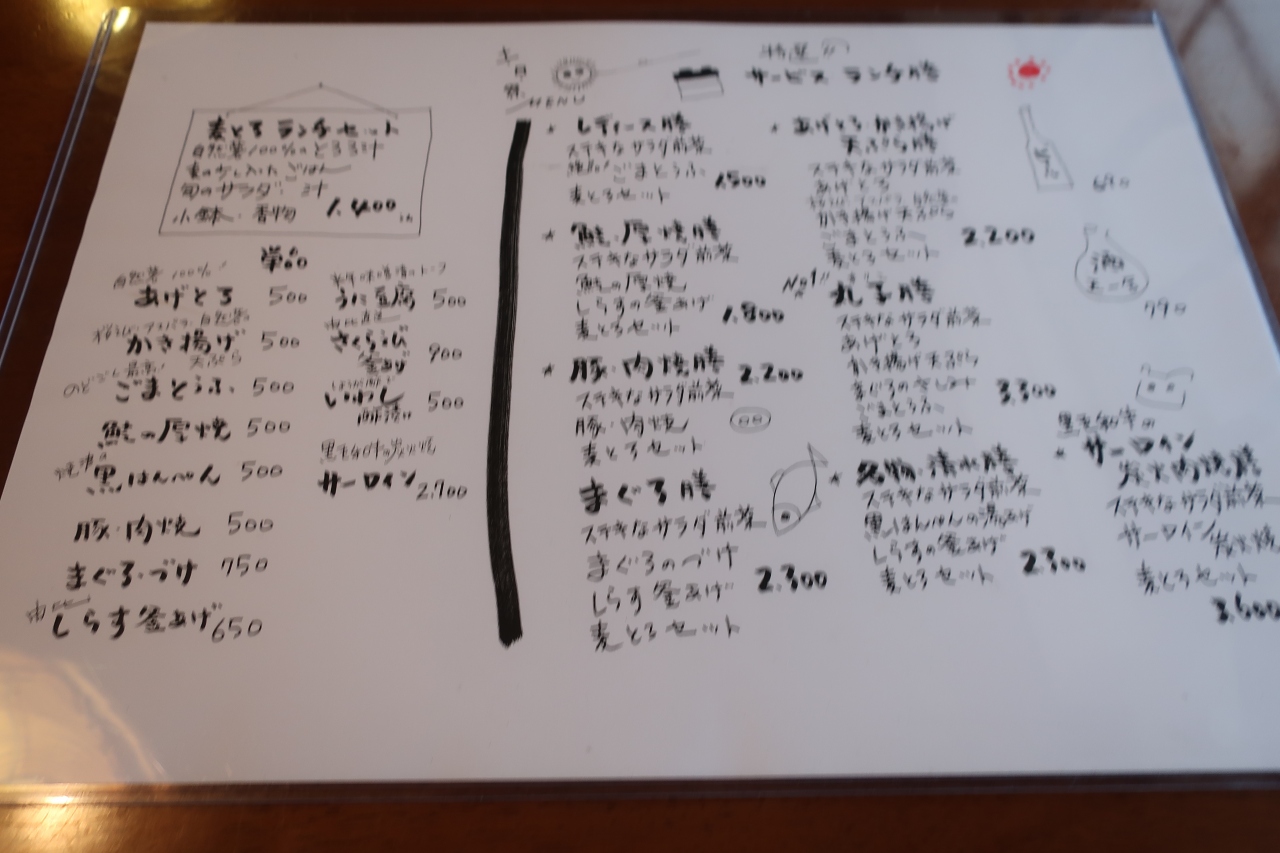 麦とろランチセット
自然薯100%のとろろ汁
麦の入ったごはん
旬のサラダ 汁
小鉢・香物 1,400
単品
自然薯100%
あげとろ 500
かき揚げ 500
天ぷら
のどごし最高!
ごまとうふ 500
鮭の厚焼 500
黒はんぺん 500
豚・肉焼 500
まぐろ・づけ 750
しらす釜あげ 650
うに豆腐 500
さくらえび
釜あげ 900
いわし 500
酢漬け
黒毛和牛の炭火焼
サーロイン 2,700
土日祭
MENU
特選の
サービス ランチ膳
レディース膳
ステキなサラダ前菜
ごまとうふ
麦とろセット 1,500
鮭・厚焼膳
ステキなサラダ前菜
鮭の厚焼
しらすの釜あげ
麦とろセット 1,800
豚・肉焼膳 2,200
ステキなサラダ前菜
豚・肉焼
麦とろセット
まぐろ膳
ステキなサラダ前菜
まぐろのづけ
しらす釜あげ 2,300
麦とろセット
あげとろ かき揚げ
天ぷら膳
ステキなサラダ前菜
あげとろ
かき揚げ天ぷら
ごまとうふ
麦とろセット 2,200
No.1!!
丸子膳
ステキなサラダ前菜
あげとろ
かき揚げ天ぷら
まぐろのさしみ
ごまとうふ 3,300
麦とろセット
名物・清水膳
ステキなサラダ前菜
黒はんぺんの
しらすの釜あげ
麦とろセット 2,300
690
酒
790
黒毛和牛の
サーロイン
炭火肉焼膳
ステキなサラダ前菜
サーロイン
炭火焼
麦とろセット
3,600